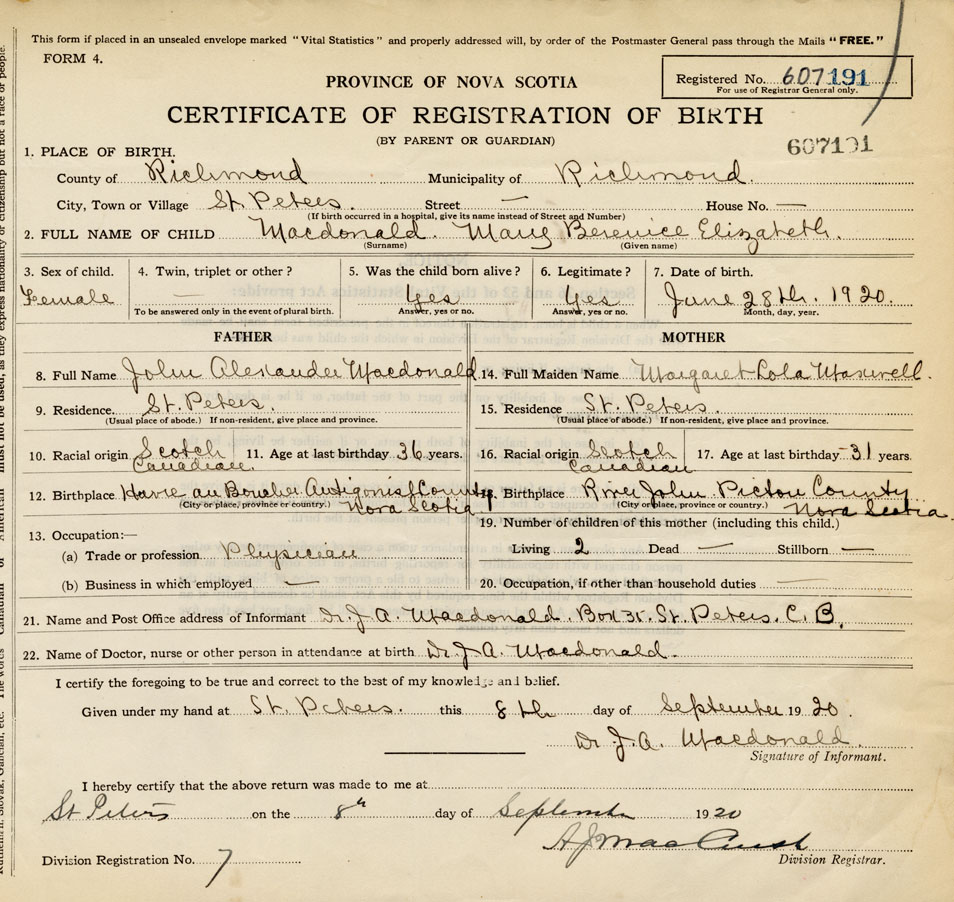 This form if placed in an unsealed envelope marked "Vital Statistics" and properly addressed will, by order of the Postmaster General pass through the Mails "FREE."
FORM 4.
Registered No. 607191
For use of Registrar General only.
PROVINCE OF NOVA SCOTIA
CERTIFICATE OF REGISTRATION OF BIRTH
(BY PARENT OR GUARDIAN)
607191
1. PLACE OF BIRTH.
County of Richmond Municipality of Richmond.
City, Town or Village St. Peters. Street — House No. —
(If birth occurred in a hospital, give its name instead of Street and Number)
2. FULL NAME OF CHILD Macdonald. Mary Berenice Elizabeth.
(Surname) (Given name)
3. Sex of child. 4. Twin, triplet or other? 5. Was the child born alive? 6. Legitimate? 7. Date of birth.
Female — Yes Yes June 28th. 1920.
To be answered only in the event of plural birth. Answer, yes or no. Answer, yes or no. Month, day, year.
FATHER MOTHER
8. Full Name John Alexander Macdonald. 14. Full Maiden Name Margaret Lola Maxwell.
9. Residence. St. Peters. 15. Residence St. Peters.
(Usual place of abode.) If non-resident, give place and province. (Usual place of abode.) If non-resident, give place and province.
10. Racial origin Scotch 11. Age at last birthday 36 years. 16. Racial origin Scotch 17. Age at last birthday 31 years.
Canadian. Canadian
12. Birthplace Havre au Boucher Antigonish County Birthplace River John Pictou County
(City or place, province or country.) Nova Scotia (City or place, province or country.) Nova Scotia.
13. Occupation:— 19. Number of children of this mother (including this child.)
(a) Trade or profession Physician Living 2 Dead — Stillborn —
(b) Business in which employed — 20. Occupation, if other than household duties —
21. Name and Post Office address of Informant Dr. J. A. Macdonald. Box 31. St. Peters. C. B.
22. Name of Doctor, nurse or other person in attendance at birth Dr J. A. Macdonald.
I certify the foregoing to be true and correct to the best of my knowledge and belief.
Given under my hand at St. Peters. this 8th day of September 1920.
Dr J. A. Macdonald.
Signature of Informant.
I hereby certify that the above return was made to me at
St Peters on the 8th day of September 1920
A J
Division Registration No. 7 Division Registrar.